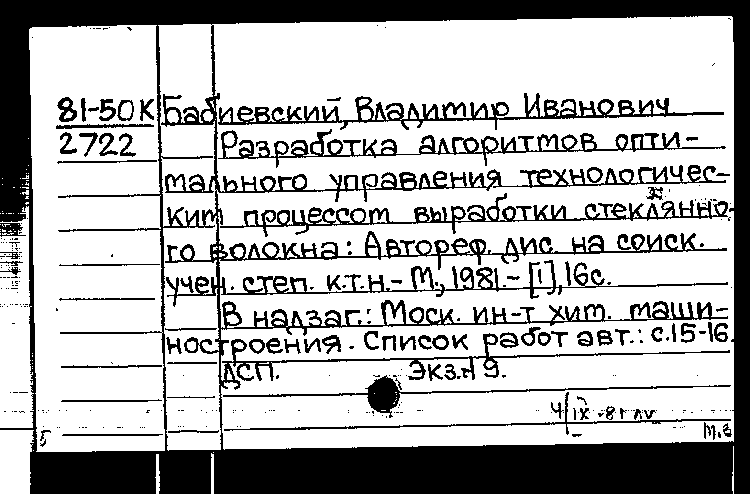 81-50К Бабиевский, Владимир Иванович
2722 Разработка алгоритмов опти-
мального управления технологичес-
ким процессом выработки стеклянно-
го волокна: Автореф. дис. на соиск.
учен. степ. к.т.н. - М., 1981. - [1], 16с.
В надзаг.: Моск. ин-т хим. маши-
ностроения. Список работ авт.: с.15-16.
ДСП. Экз. 19.
4/IX-81
5